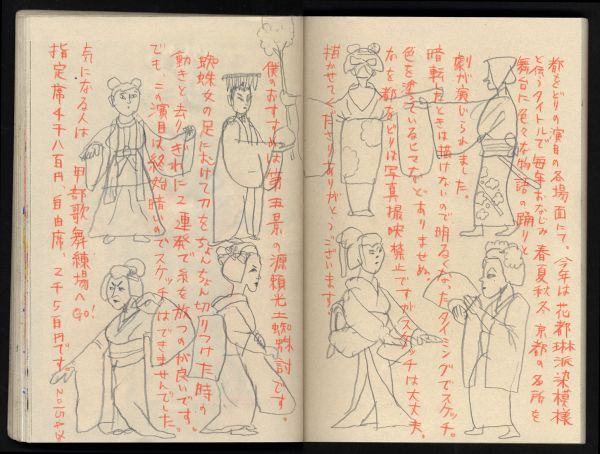 都をどりの演目の各場面にて、今年は花都琳派染模様
と伝うタイトルで毎年おなじみ春夏秋冬京都の名所を
舞台に色々な物語の踊りと
劇が演じられました。
暗転なときは描けないので明るくなったタイミングでスケッチ。
色を塗っているヒマなどありませぬ。
なを都をどりは写真撮映禁止ですがスケッチは大丈夫。
描かせてくださりありがとうございます。
僕のおすすめは第五景の源頼光土蜘蛛討です。
蜘蛛女の足にむけて刀をちょんちょん切りつけた時の
動きと去りぎわに2連発で糸を放つのが良いです。
でも、この演目は終始暗いのでスケッチはできませんでした。
気になる人は 甲部歌舞練場へGO!
指定席4千八百円、自由席、2千5百円です。2015